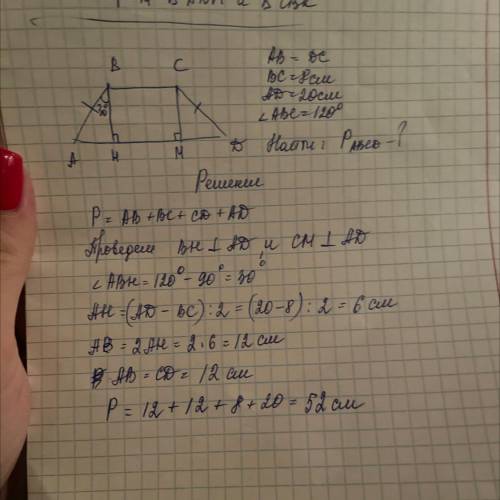 В С
30°
А Н М D
AB = DC
BC = 8 см
AD = 20 см
∠ABC = 120°
Найти: PABCD - ?
Решение
P = AB + BC + CD + AD
Проведем BH ⊥ AD и CM ⊥ AD
∠ABH = 120° - 90° = 30°
AH = (AD - BC) : 2 = (20 - 8) : 2 = 6 см
AB = 2AH = 2 · 6 = 12 см
AB = CD = 12 см
P = 12 + 12 + 8 + 20 = 52 см